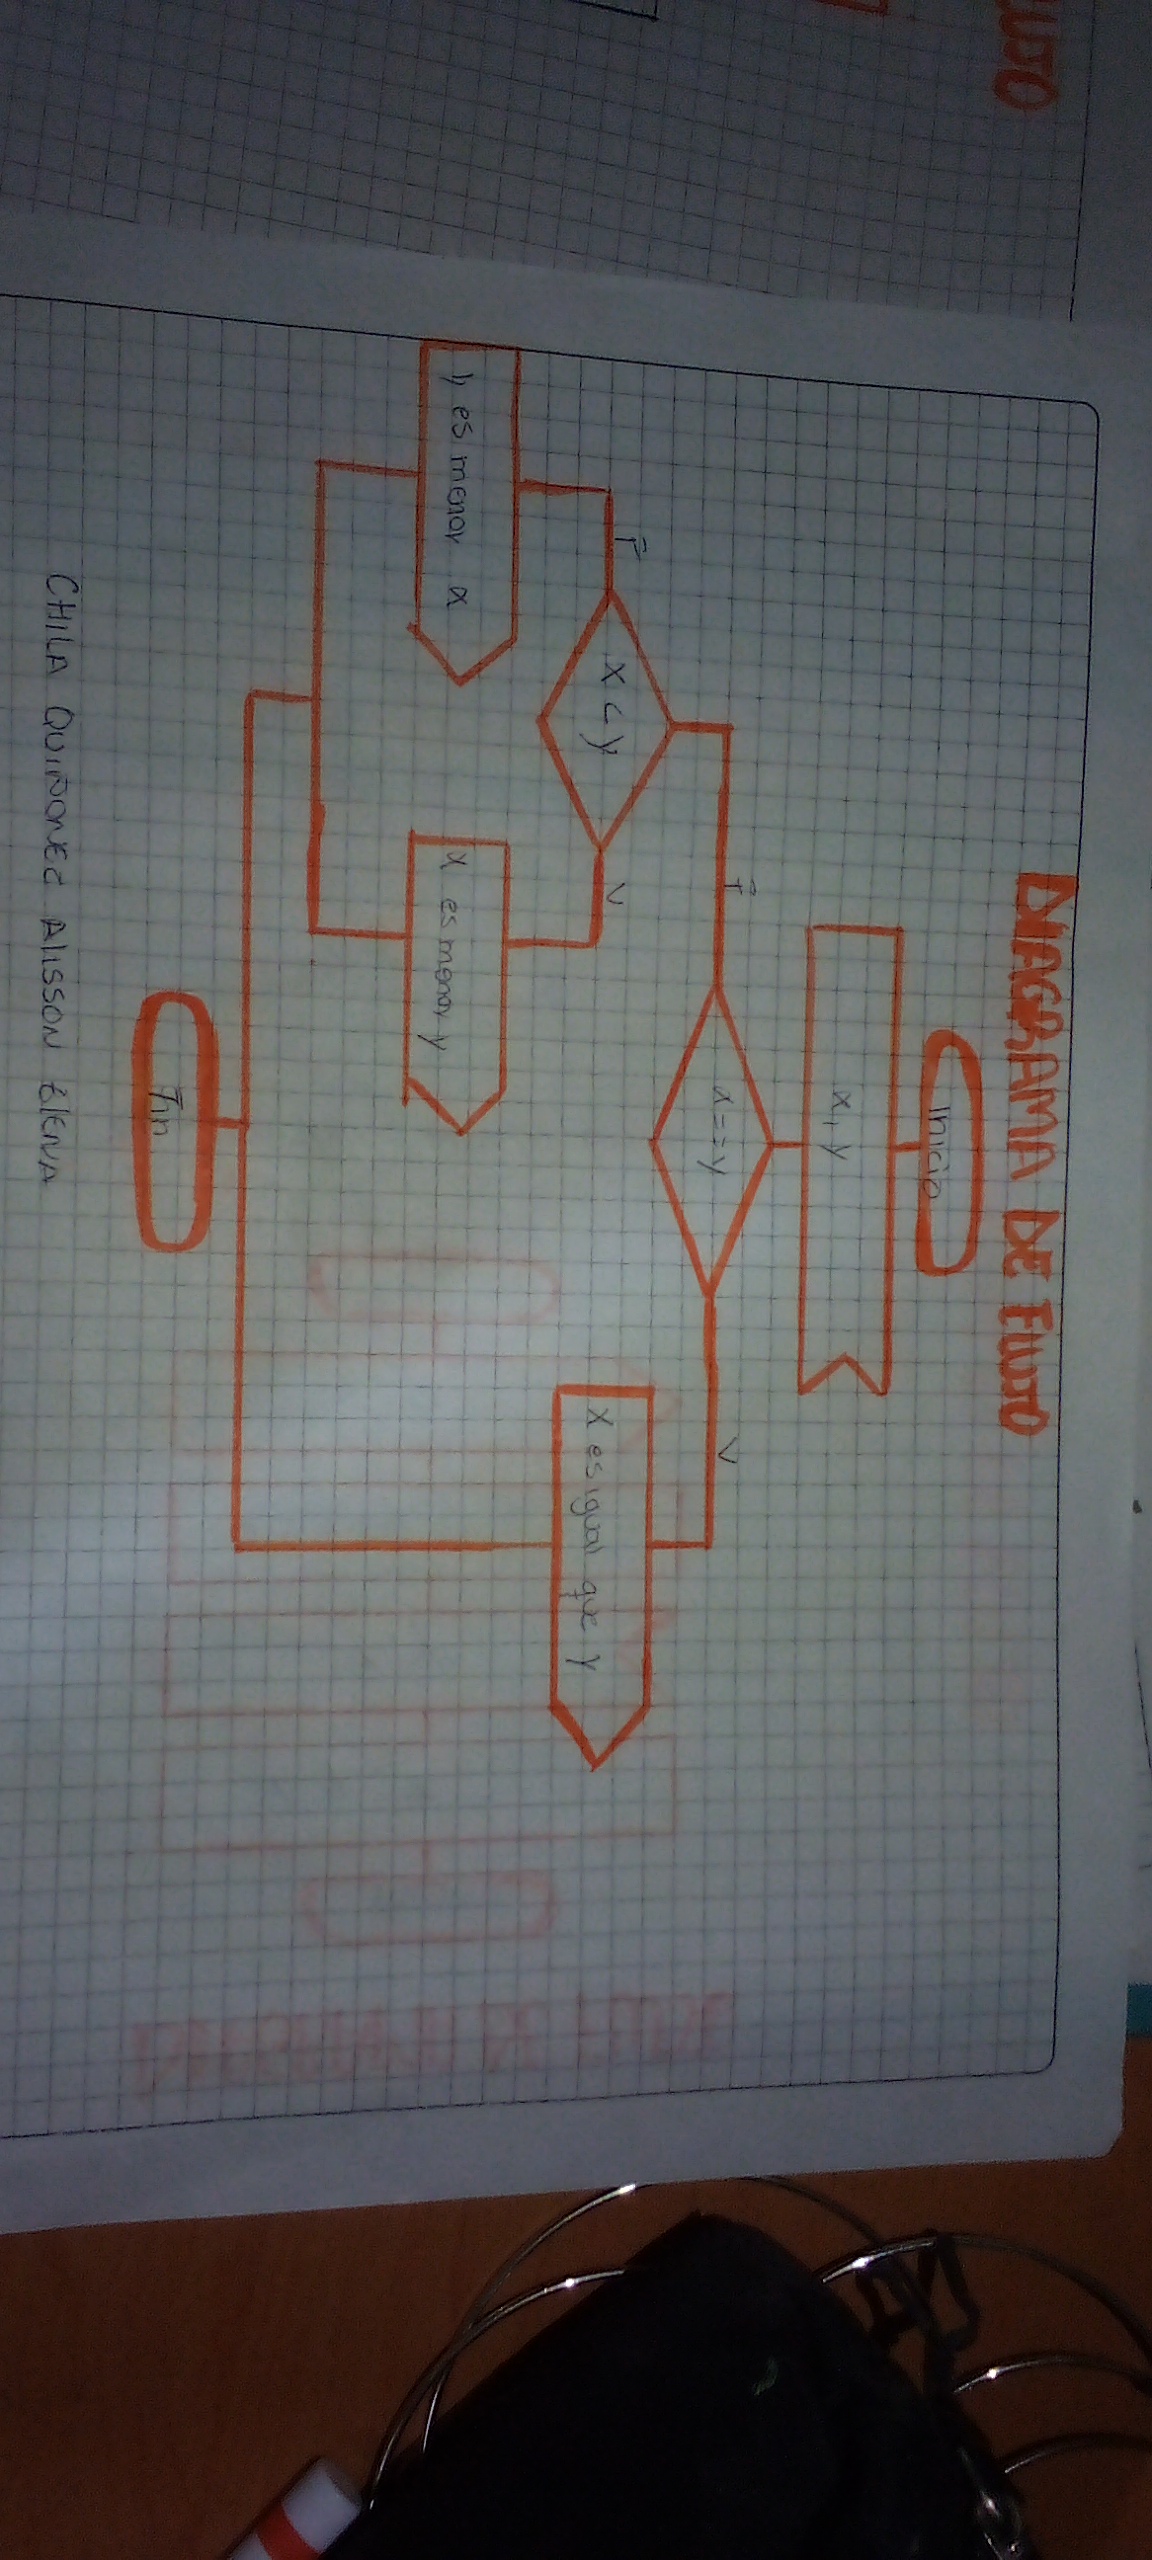 DIAGRAMA DE FLUJO
Inicio
x, y
x==y
F
V
x < y
F
V
X es igual que y
y es menor x
x es menor y
Fin
CHILA QUIÑONEZ ALISSON ELENA